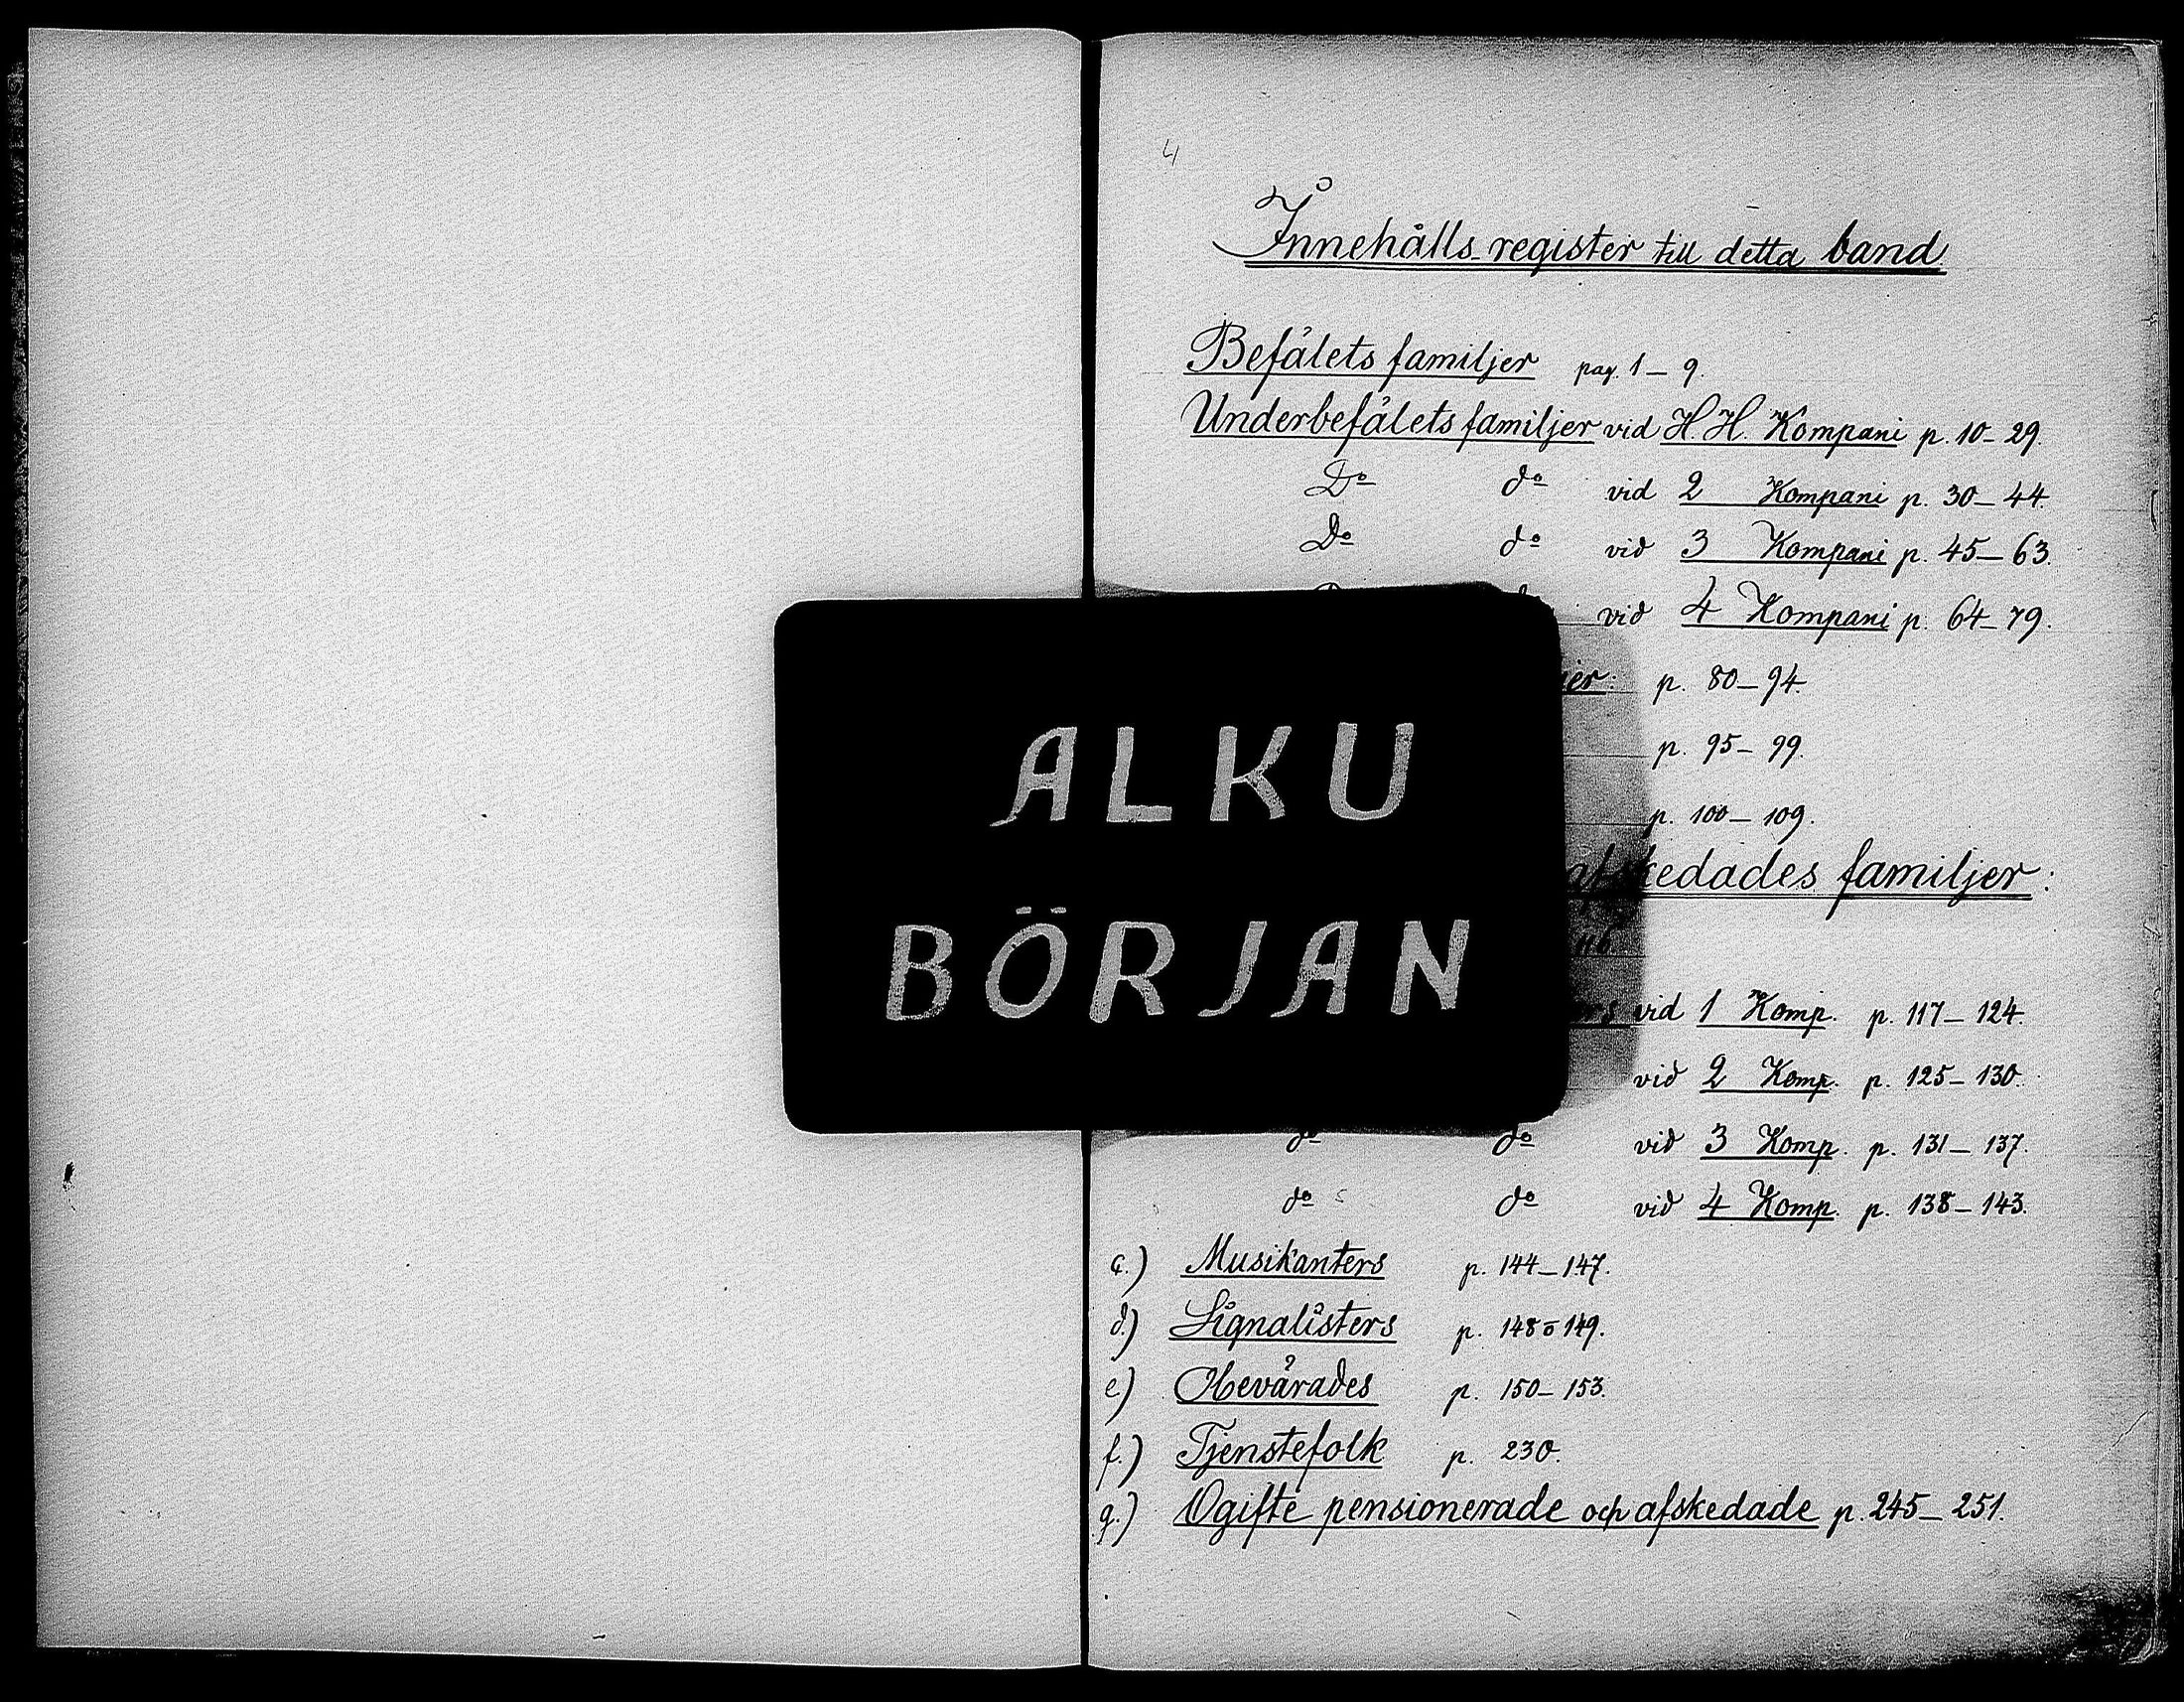 Innehålls-register till detta band
Befälets familjer pag. 1 – 9.
Underbefälets familjer vid H. H. Kompani p. 10 – 29.
Do do vid 2 Kompani p. 30 – 44.
Do do vid 3 Kompani p. 45 – 63.
vid 4 Kompani p. 64 – 79.
p. 80 – 94.
p. 95 – 99.
p. 100 – 109.
ALKU
BÖRJAN
afskedades familjer:
116
vid 1 Komp. p. 117 – 124.
vid 2 Komp. p. 125 – 130.
do do vid 3 Komp. p. 131 – 137.
do do vid 4 Komp. p. 138 – 143.
c.) Musikanters p. 144 – 147.
d.) Signalisters p. 148 o 149.
e) Obevärades p. 150 – 153.
f.) Tjenstefolk p. 230.
g.) Ogifte pensionerade och afskedade p. 245 – 251.